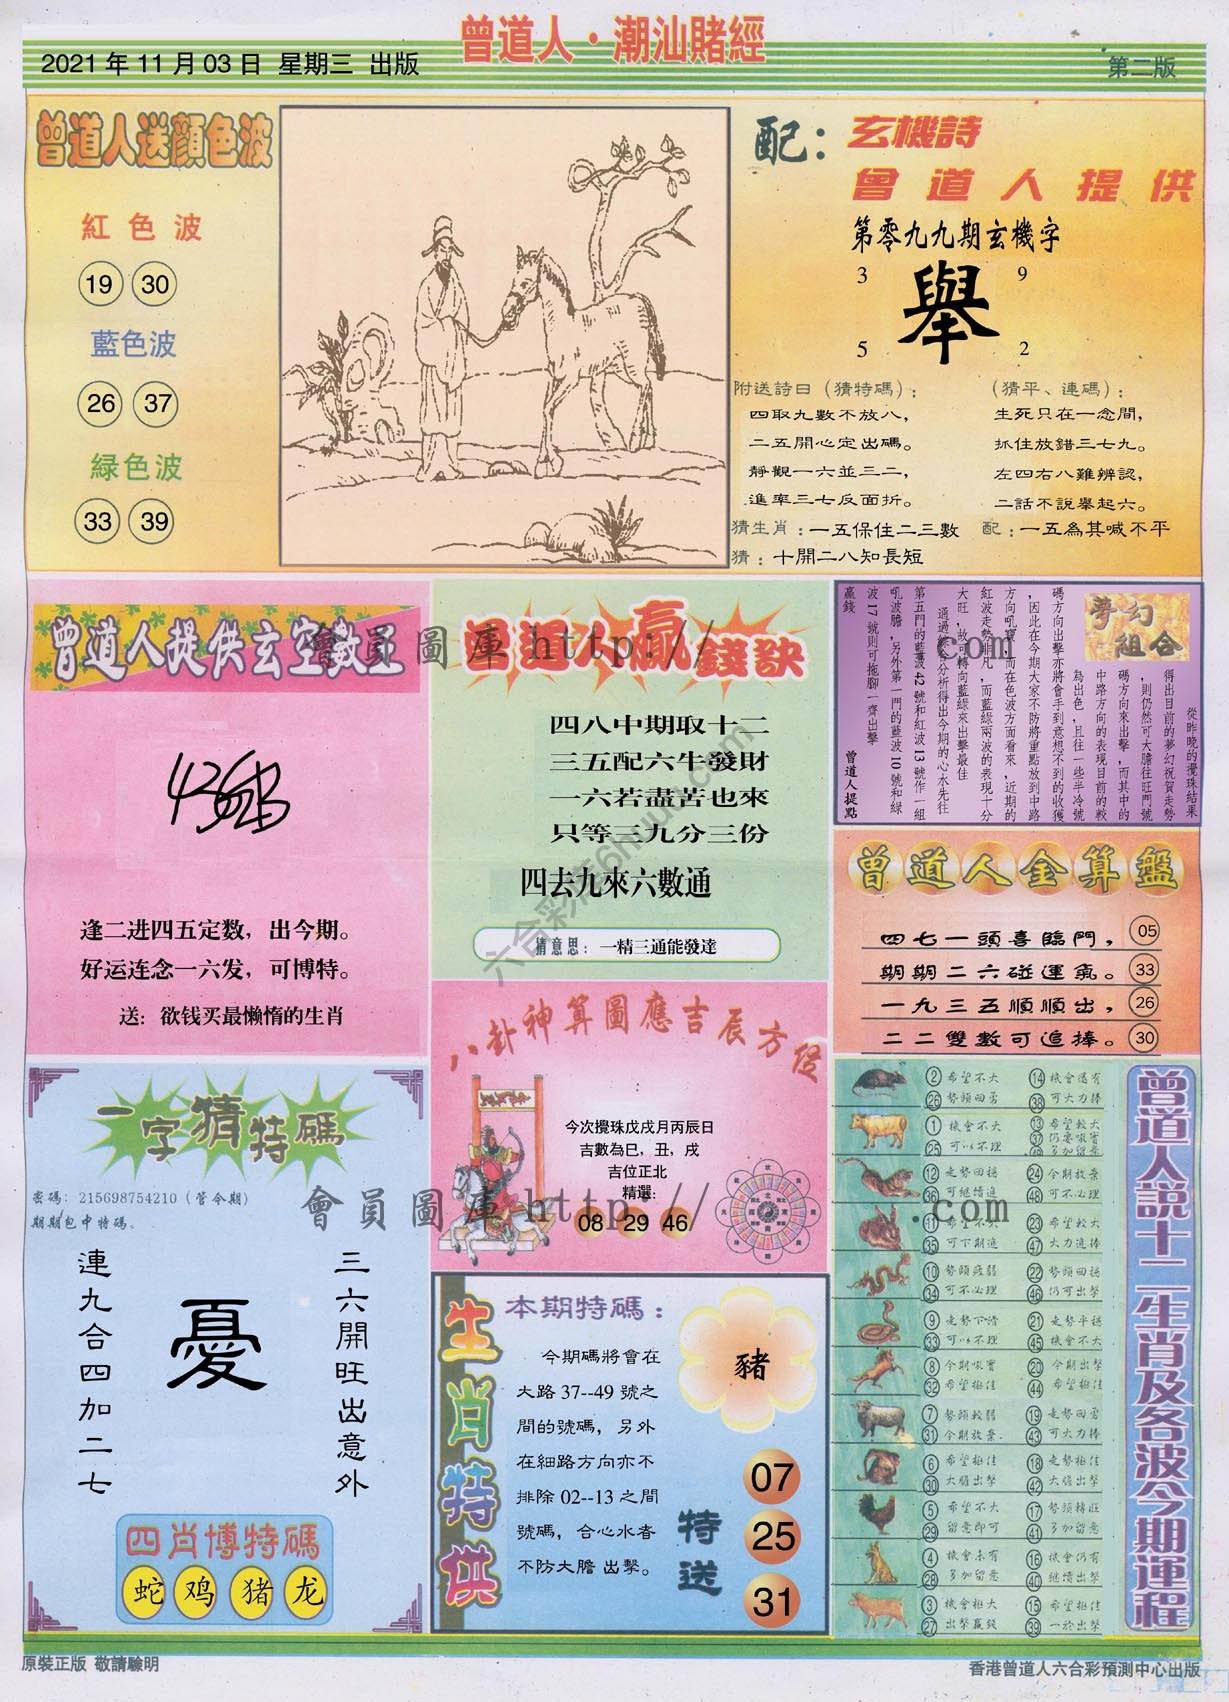 曾道人·潮汕賭經
2021 年 11 月 03 日 星期三 出版
第二版
曾道人送顏色波
紅色波
19 30
藍色波
26 37
緑色波
33 39
配：
玄機詩
曾道人提供
第零九九期玄機字
3 9
舉
5 2
附送詩日（猜特碼）：
四取九數不放八，
二五開心定出碼。
靜觀一六並三二，
進率三七反面折。
（猜平、連碼）：
生死只在一念間，
抓住放錯三七九。
左四右八難辨認，
二話不說舉起六。
猜生肖：一五保住二三數
配：一五為其喊不平
猜：十開二八知長短
曾道人提供玄空數王
逢二进四五定数，出今期。
好运连念一六发，可博特。
送：欲钱买最懒惰的生肖
曾道人贏錢訣
四八中期取十二
三五配六牛發財
一六若盡苦也來
只等三九分三份
四去九來六數通
猜意思：一精三通能發達
夢幻組合
從昨晚的攪珠結果
得出目前的夢幻祝賀走勢
，則仍然可大膽往旺門號
碼方向來出擊，而其中的
中路方向的表現目前的較
為出色，且往一些半冷號
碼方向出擊亦將會手到意想不到的收獲
，因此在今期大家不防將重點放到中路
方向吼寶，而在色波方面看來，近期的
紅波走勢非凡，而藍綠兩波的表現十分
大旺，故可轉向藍綠來出擊最佳
通過綜合分析得出今期的心水先往
第五門的藍波 42 號和紅波 13 號作一組
吼波膽，另外第一門的藍波 10 號和綠
波 17 號則可拖腳一齊出擊
贏錢
曾道人提點
曾道人金算盤
四七一頭喜臨門， 05
期期二六碰運氣。 33
一九三五順順出， 26
二二雙數可追捧。 30
八卦神算圖應吉辰方位
今次攪珠戊戌月丙辰日
吉數為巳，丑，戌
吉位正北
精選：
08 29 46
一字猜特碼
密碼：215698754210（管令期）
期期包中特碼。
三六開旺出意外
憂
連九合四加二七
四肖博特碼
蛇 鸡 猪 龙
生肖特供
本期特碼：
今期碼將會在
大路 37--49 號之
間的號碼，另外
在細路方向亦不
排除 02--13 之間
號碼，合心水者
不防大膽 出擊。
豬
特送
07
25
31
曾道人說十二生肖及各波今期運程
② 希望不大 ⑭ 機會還有
㉖ 勢頭回勇 ㊳ 可大力捧
① 機會不大 ⑬ 希望較大
㉕ 可以不理
⑫ 走勢回穩 ㉔ 今期放棄
㊱ 可繼續追 ㊽ 可不必理
⑪ 希望不外 ㉓ 希望較大
㉟ 可下期追 ㊼ 大力追捧
⑩ 勢頭疲弱 ㉒ 勢頭回穩
㉞ 可不必理 ㊻ 仍可出擊
⑨ 走勢下滑 ㉑ 走勢平穩
㉝ 可以不理 ㊺ 機會不大
⑧ 今期吼寶 ⑳ 今期出擊
㉜ 希望極佳 ㊹ 希望極佳
⑦ 勢頭較弱 ⑲ 走勢回勇
㉛ 今期放棄. ㊸ 可大力捧
⑥ 希望極佳 ⑱ 走勢極佳
㉚ 大膽出擊 ㊷ 大膽出擊
⑤ 希望不大 ⑰ 勢頭轉旺
㉙ 留意即可 ㊶ 多加留意
④ 機會未有 ⑯ 機會仍有
㉘ 多加留意 ㊵ 繼續出擊
③ 機會極大 ⑮ 希望極佳
㉗ 出擊贏錢 ㊴ 一於出擊
會員圖庫 http:// .com
會員圖庫 http:// .com
原裝正版 敬請驗明
香港曾道人六合彩預測中心出版